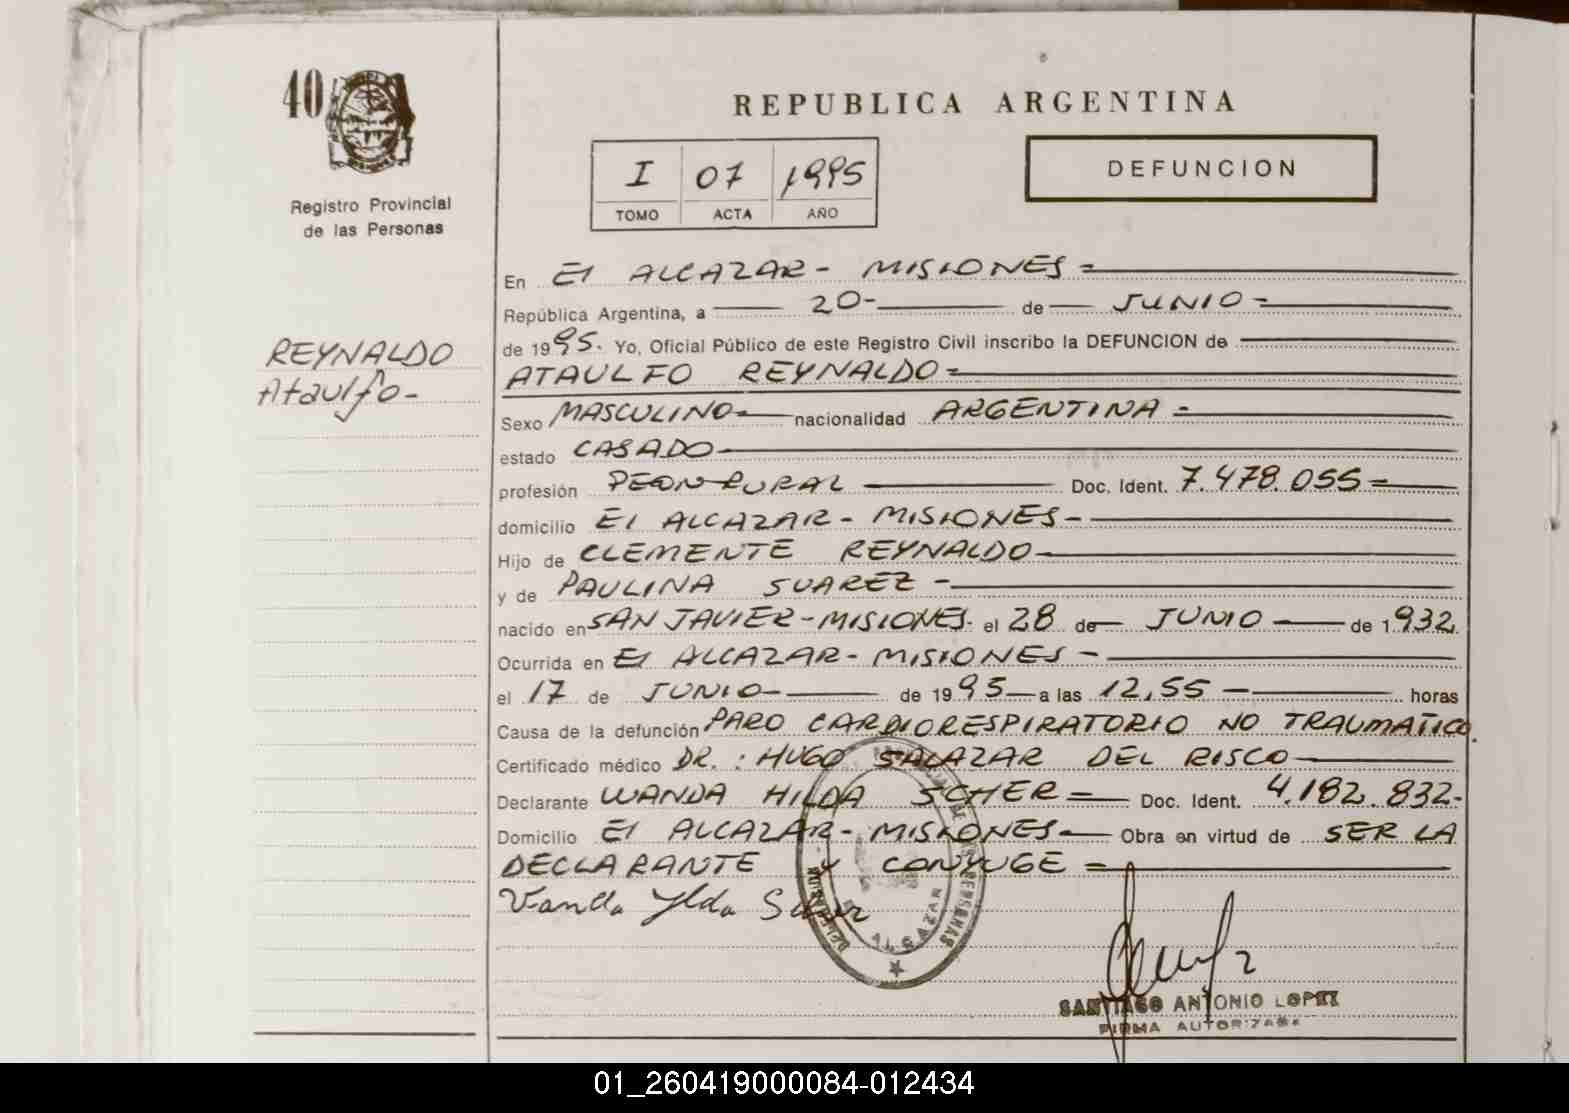 40
Registro Provincial
de las Personas
REYNALDO
Ataulfo-
REPUBLICA ARGENTINA
I 07 1995
TOMO ACTA AÑO
DEFUNCION
En El ALCAZAR - MISIONES =
República Argentina, a 20- de JUNIO =
de 1995. Yo, Oficial Público de este Registro Civil inscribo la DEFUNCION de
ATAULFO REYNALDO =
Sexo MASCULINO nacionalidad ARGENTINA =
estado CASADO
profesión PEON RURAL Doc. Ident. 7.478.055 =
domicilio El ALCAZAR - MISIONES -
Hijo de CLEMENTE REYNALDO
y de PAULINA SUAREZ -
nacido en SAN JAVIER - MISIONES. el 28 de JUNIO de 1932.
Ocurrida en El ALCAZAR - MISIONES -
el 17 de JUNIO de 1995 a las 12,55 horas
Causa de la defunción PARO CARDIORESPIRATORIO NO TRAUMATICO.
Certificado médico DR. : HUGO SALAZAR DEL RISCO
Declarante WANDA HILDA SCHER = Doc. Ident. 4.182.832-
Domicilio El ALCAZAR - MISIONES Obra en virtud de SER LA
DECLARANTE Y CONYUGE =
Vanda Ylda Scher
SANTIAGO ANTONIO LOPEZ
FIRMA AUTORIZADA
01_260419000084-012434